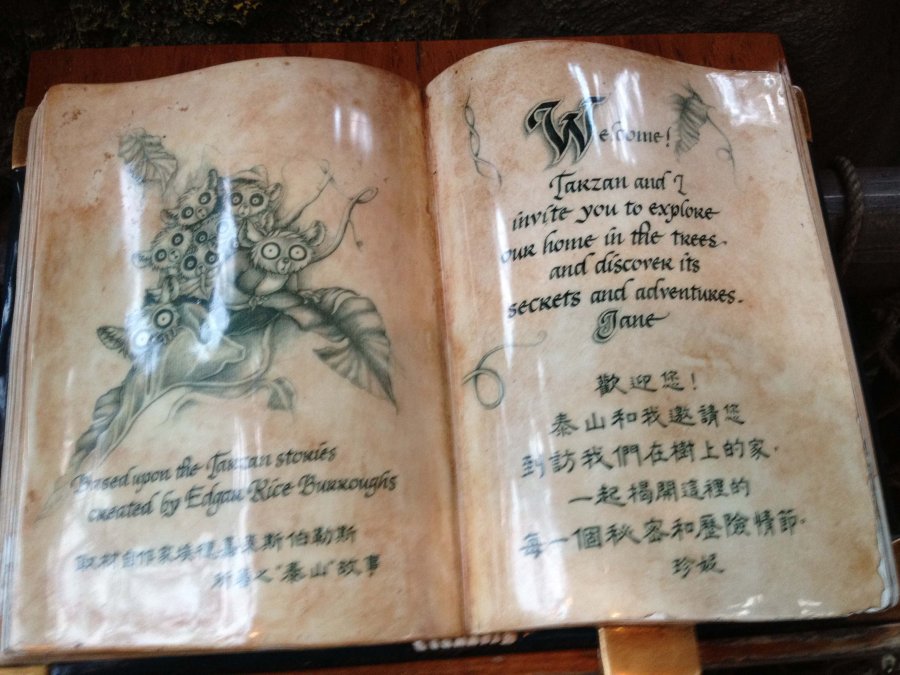 Based upon the Tarzan stories
created by Edgar Rice Burroughs
取材自作家埃德嘉萊斯伯勒斯
所著之"泰山"故事
Welcome!
Tarzan and I
invite you to explore
our home in the trees.
and discover its
secrets and adventures.
Jane
歡迎您!
泰山和我邀請您
到訪我們在樹上的家.
一起揭開這裡的
每一個秘密和歷險情節.
珍妮